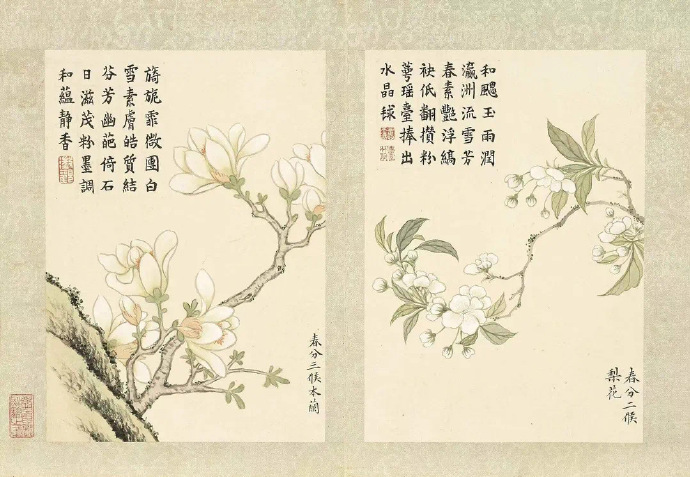 和飈玉雨潤
瀛洲流雪芳
春素艷浮縞
袂低翻攢粉
萼瑤臺捧出
水晶毬
春分二候
梨花
旖旎霏微團白
雪素膚皓質結
芬芳幽葩倚石
日滋茂粉墨調
和蘊静香
春分三候木蘭